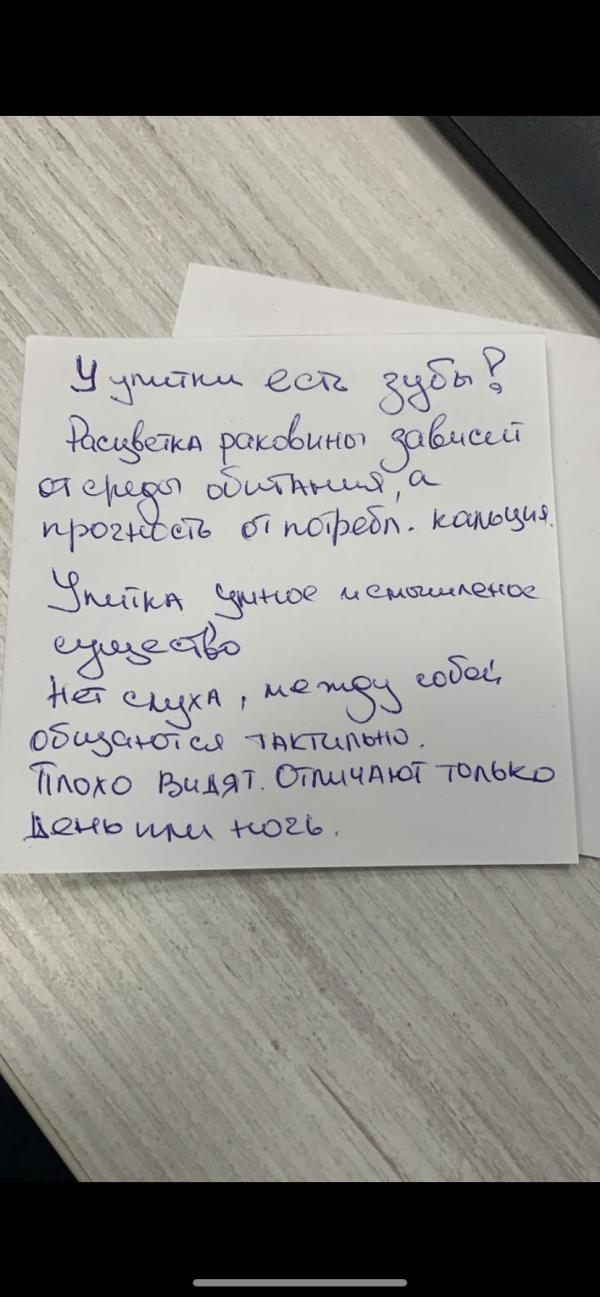 У улитки есть зубы?
Расцветка раковины зависит
от среды обитания, а
прочность от потребл. кальция.
Улитка умное и смышленое
существо
Нет слуха, между собой
общаются тактильно.
Плохо видят. Отличают только
день или ночь.